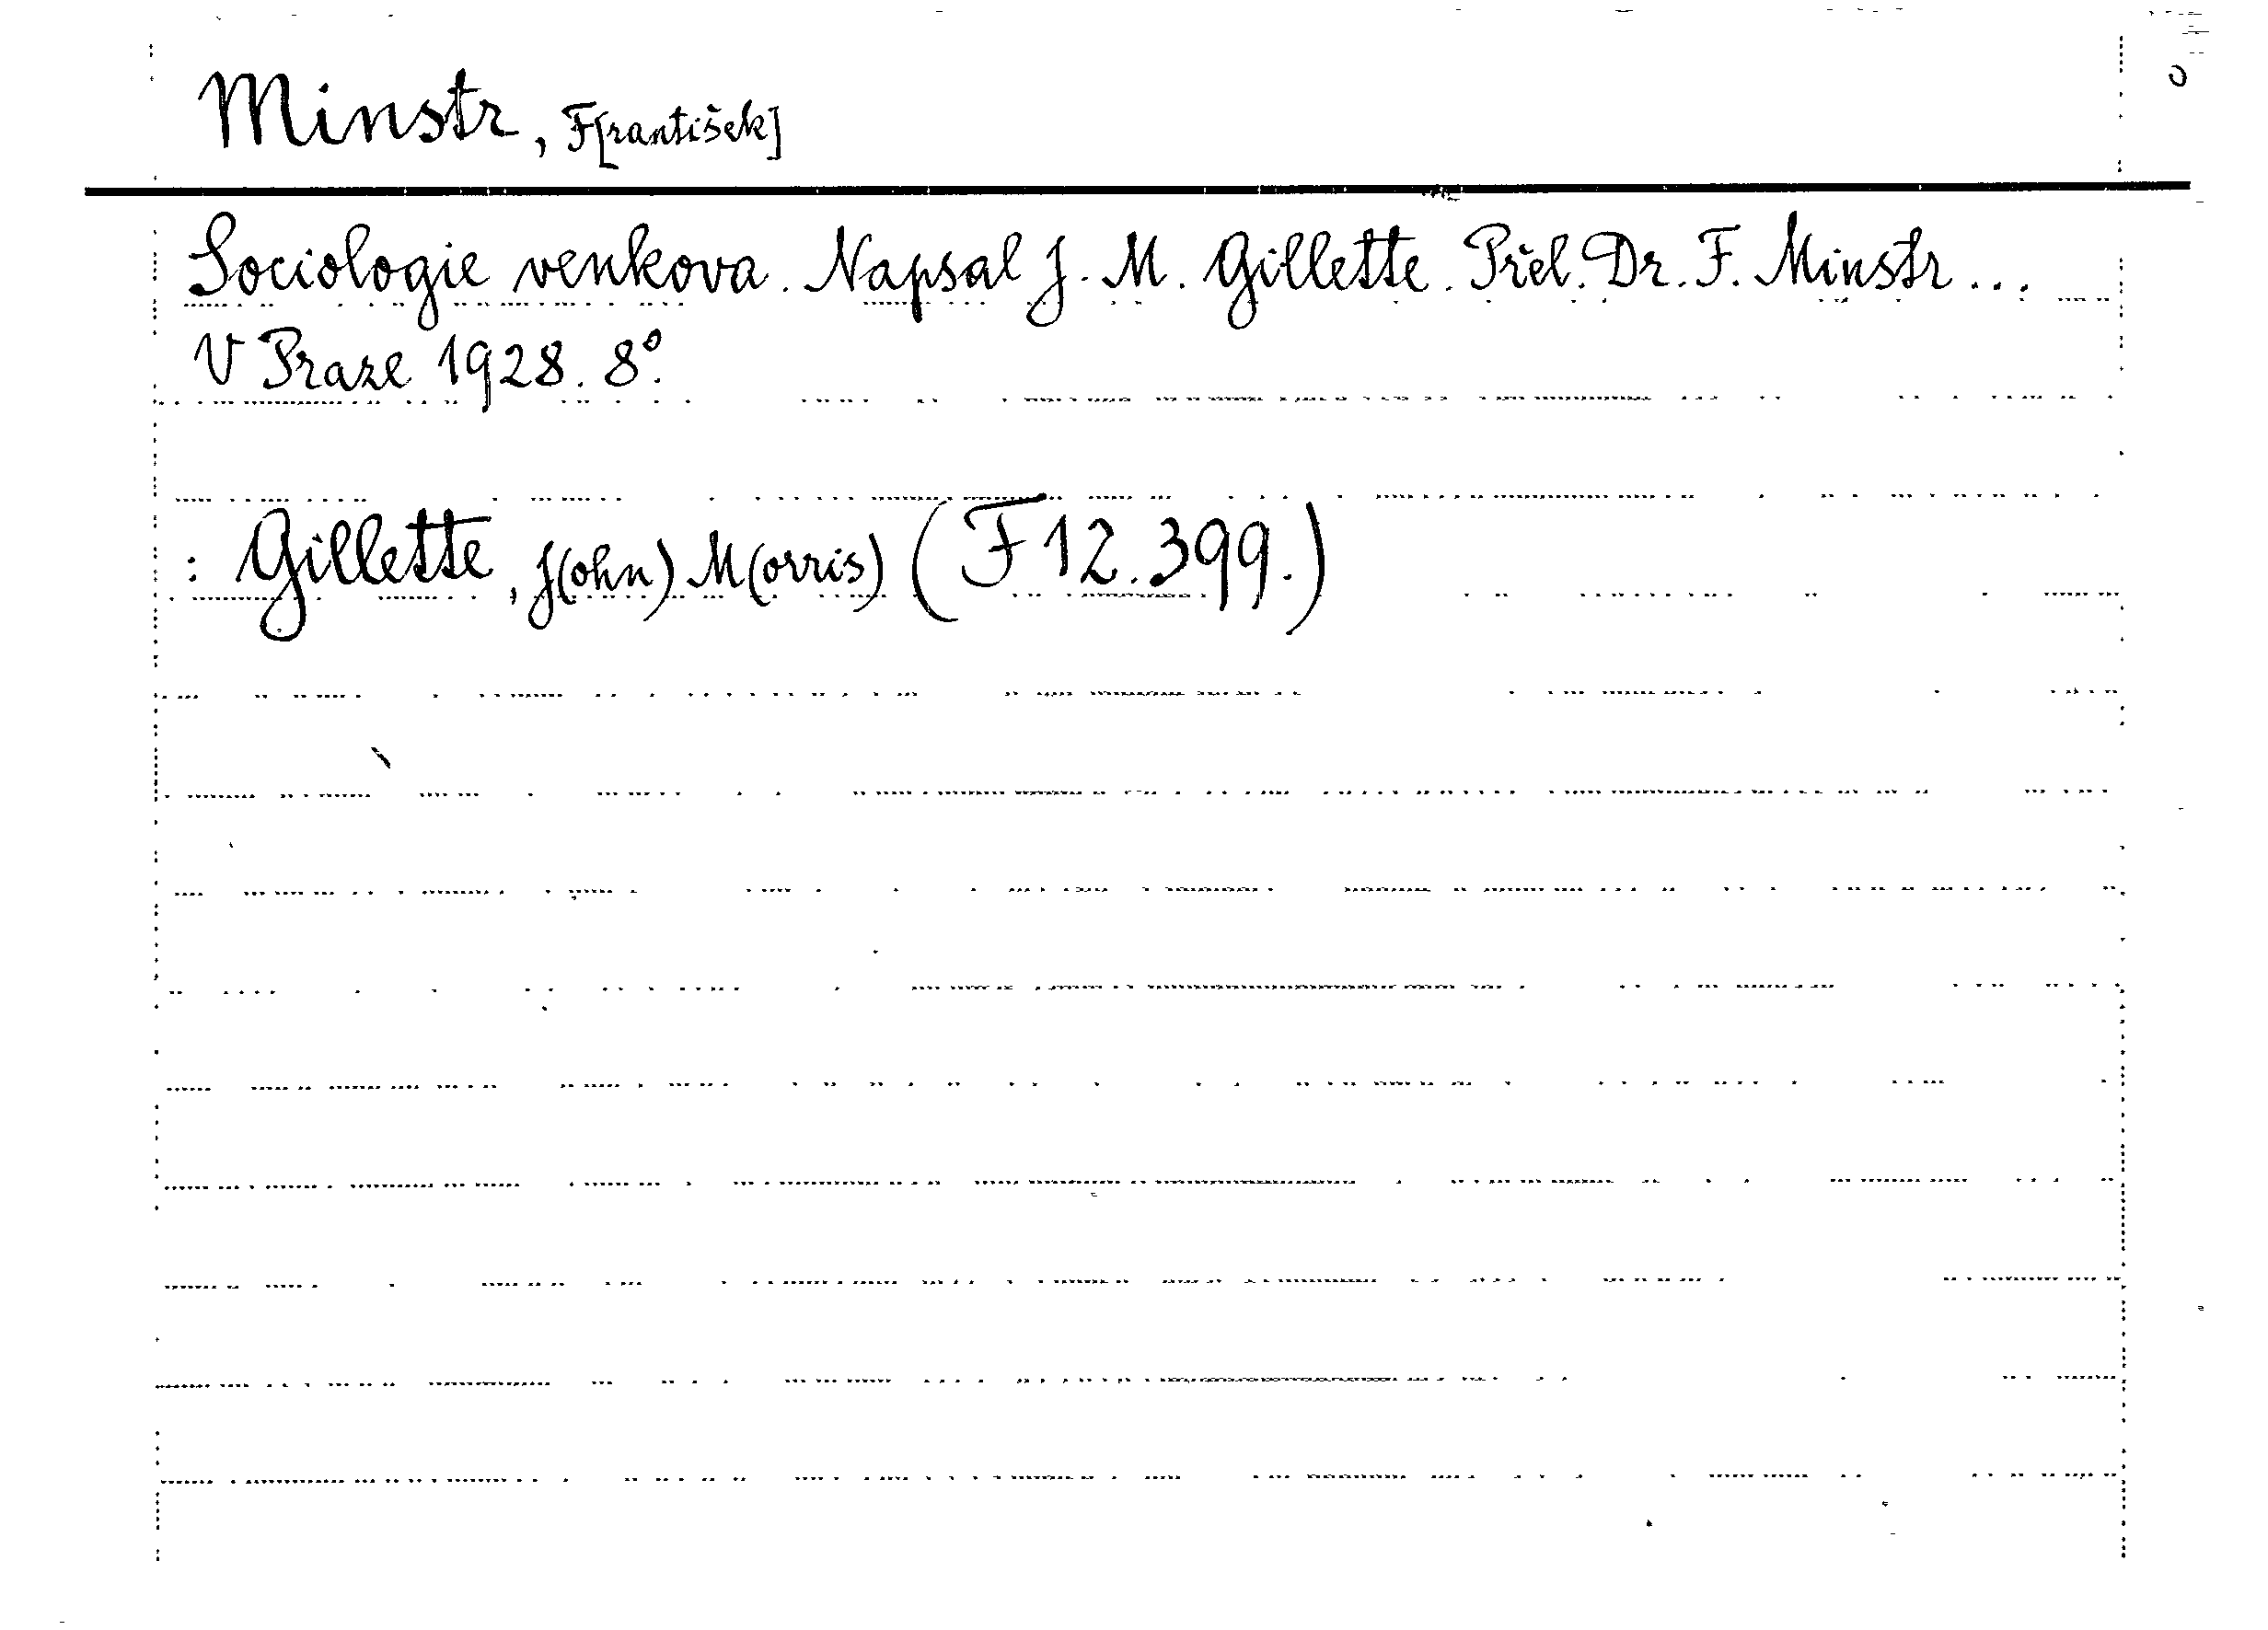 Minstr, F[rantišek]
Sociologie venkova. Napsal J. M. Gillette. Přel. Dr. F. Minstr...
V Praze 1928. 8°.
: Gillette, J(ohn) M(orris) (F 12.399.)